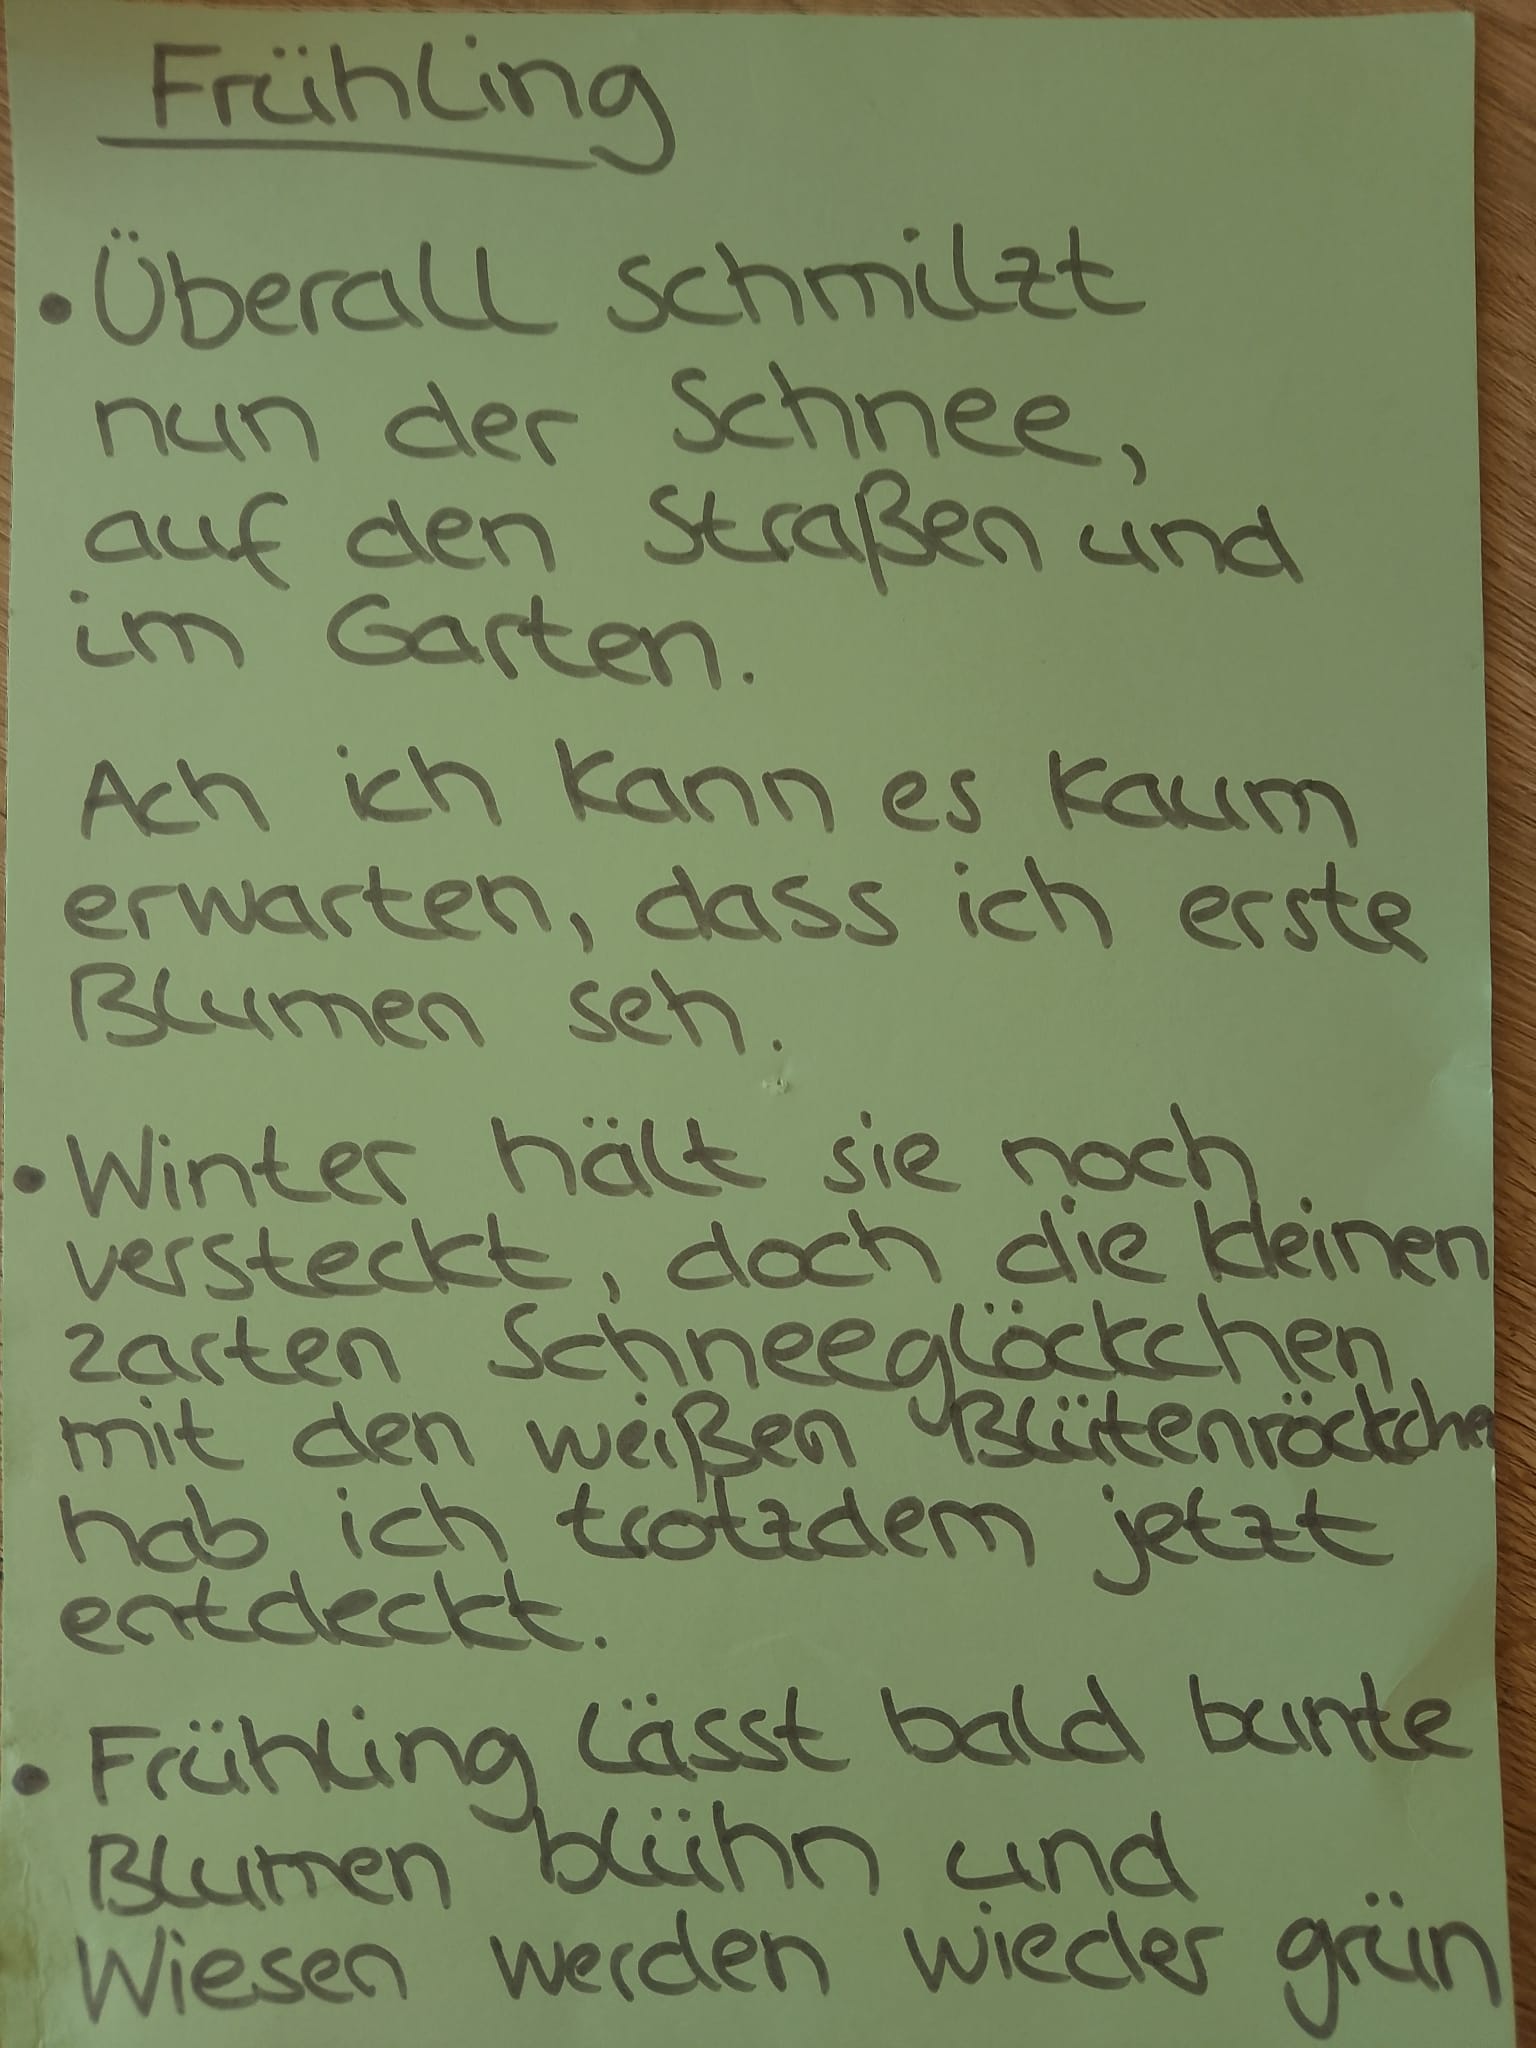 Frühling
• Überall schmilzt
nun der Schnee,
auf den Straßen und
im Garten.
Ach ich kann es kaum
erwarten, dass ich erste
Blumen seh.
• Winter hält sie noch
versteckt, doch die kleinen
zarten Schneeglöckchen
mit den weißen Blütenröckchen
hab ich trotzdem jetzt
entdeckt.
• Frühling lässt bald bunte
Blumen blühn und
Wiesen werden wieder grün